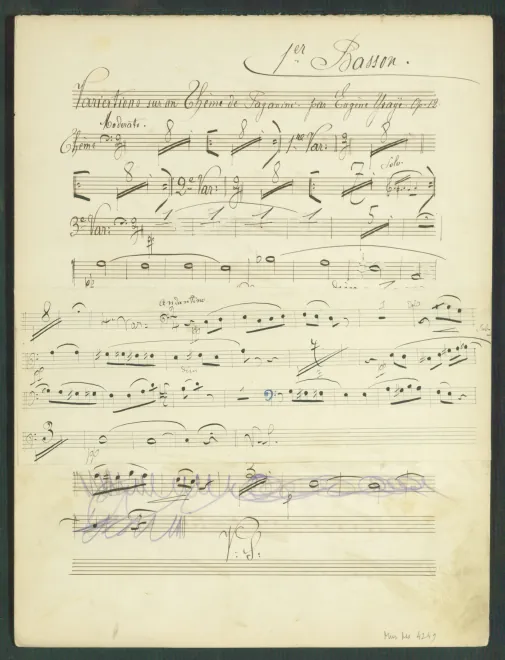 1er Basson.
Variations sur un Thême de Paganini par Eugène Ysaÿe Op:
Moderato.
Thême 8 8 1re Var: 8
Solo
8 2e Var: 8 7
3e Var: 1 1 1 1 5
8 Var
andantino
pp 1
4
3 V.S.
pp
3
V.S.
Mus Ms 4249